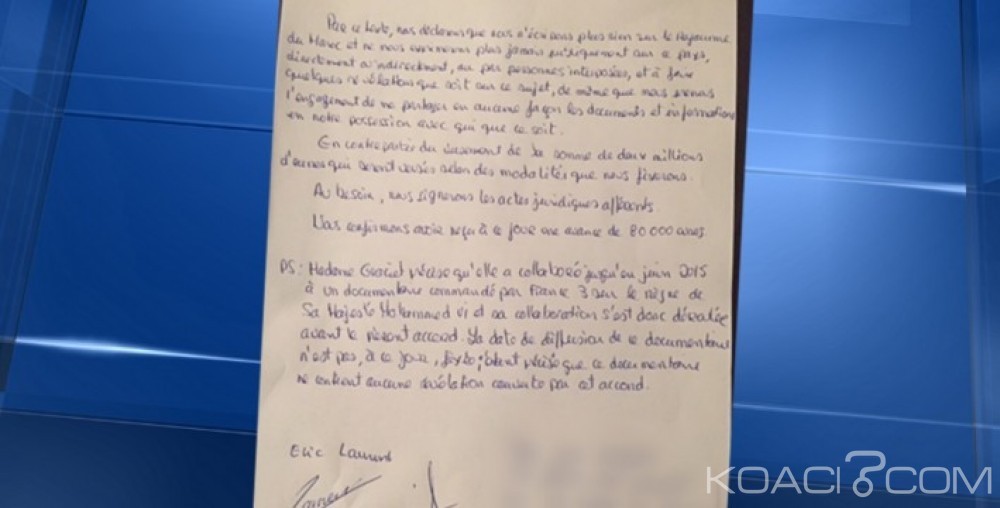 Par ce texte, nous déclarons que nous n'écrirons plus rien sur le Royaume
du Maroc et ne nous exprimerons plus jamais publiquement sur ce pays,
directement ou indirectement, ou par personnes interposées, et à faire
quelques révélations que soit sur ce sujet, de même que nous prenons
l'engagement de ne partager en aucune façon les documents et informations
en notre possession avec qui que ce soit.
En contrepartie du versement de la somme de deux millions
d'euros qui seront versés selon des modalités que nous fixerons.
Au besoin, nous signerons les actes juridiques afférents.
Nous confirmons avoir reçu à ce jour une avance de 80 000 euros
PS : Madame Graciet précise qu'elle a collaboré jusqu'en juin 2015
à un documentaire commandé par France 3 sur le règne de
Sa Majesté Mohammed VI et sa collaboration s'est donc déroulée
avant le présent accord. La date de diffusion de ce documentaire
n'est pas, à ce jour, fixée ; étant précisé que ce documentaire
ne contient aucune révélation couverte par cet accord.
Eric Laurent
KOACI?COM